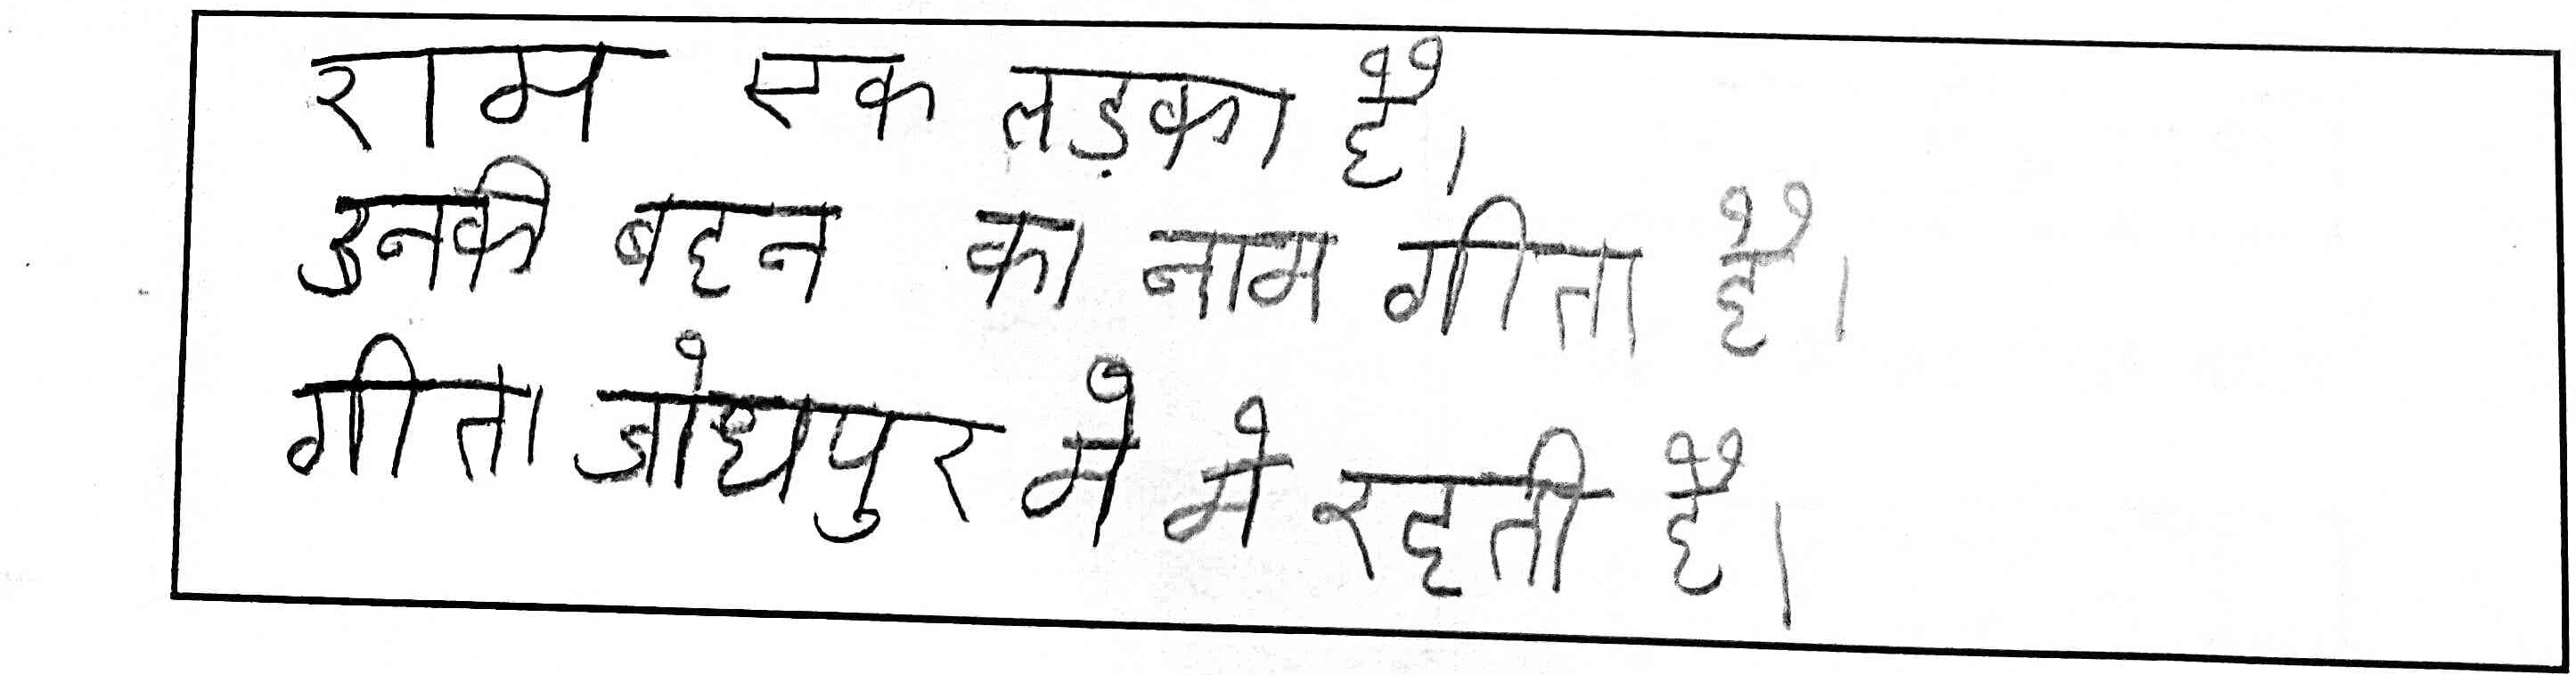 राम एक लड़का है।
उनकी बहन का नाम गीता है।
गीता जोधपुर मे मे रहती है।